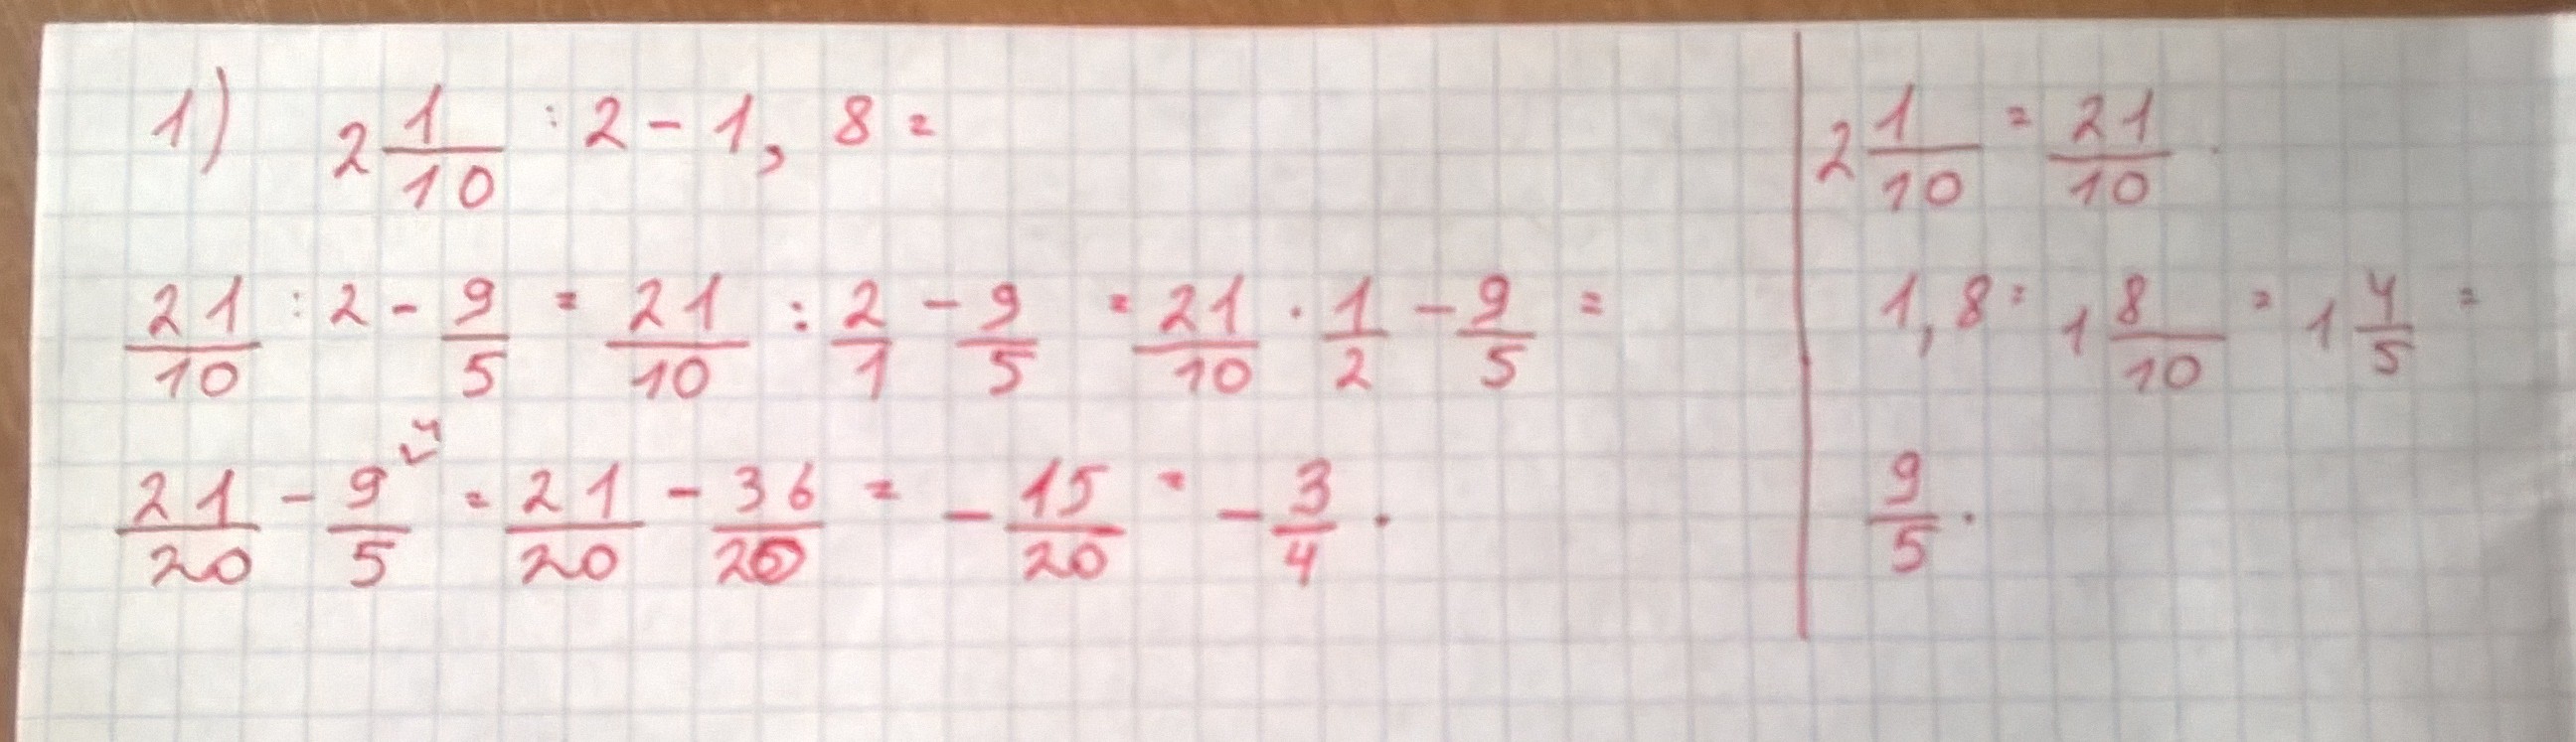 1) 2 1/10 : 2 - 1,8 =
21/10 : 2 - 9/5 = 21/10 : 2/1 - 9/5 = 21/10 · 1/2 - 9/5 =
21/20 - 9/5 ⁴ = 21/20 - 36/20 = - 15/20 = - 3/4 .
2 1/10 = 21/10 .
1,8 = 1 8/10 = 1 4/5 =
9/5 .